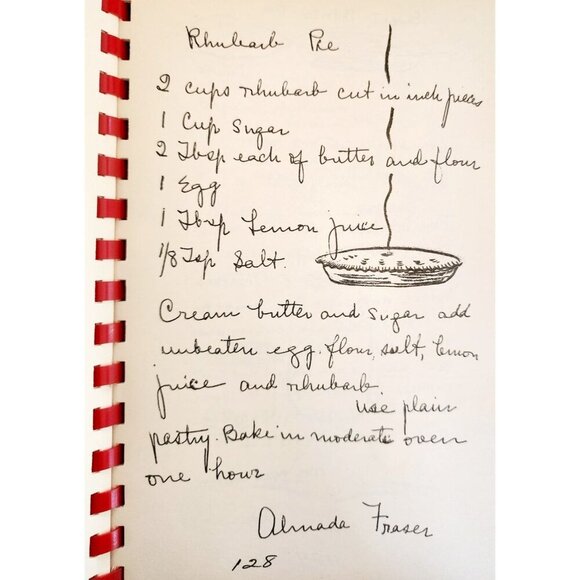 Rhubarb Pie
2 cups rhubarb cut in inch pieces
1 Cup Sugar
2 Tbsp each of butter and flour
1 Egg
1 Tbsp Lemon juice
1/8 Tsp Salt.
Cream butter and sugar add
unbeaten egg. flour, salt, lemon
juice and rhubarb.
use plain
pastry. Bake in moderate oven
one hour
Almada Fraser
128